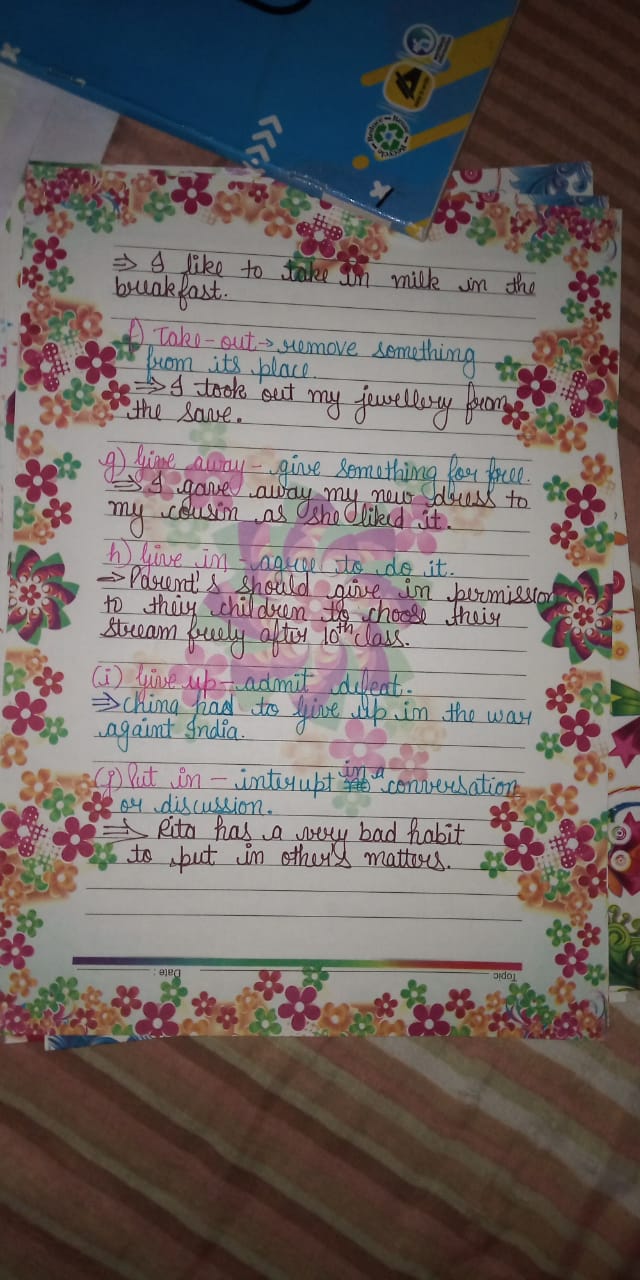 ⇒ I like to take in milk in the
breakfast.
f) Take-out→ remove something
from its place
⇒ I took out my jewellery from
the save.
g) Give away - give something for free.
⇒ I gave away my new dress to
my cousin as she liked it.
h) Give in - agree to do it.
⇒ Parent's should give in permission
to their children to choose their
stream freely after 10th class.
(i) Give up - admit defeat.
⇒ Ching had to give up in the war
againt India.
(j) Put in - interupt in a conversation
or discussion.
⇒ Rita has a very bad habit
to put in other's matters.
Topic
Date :